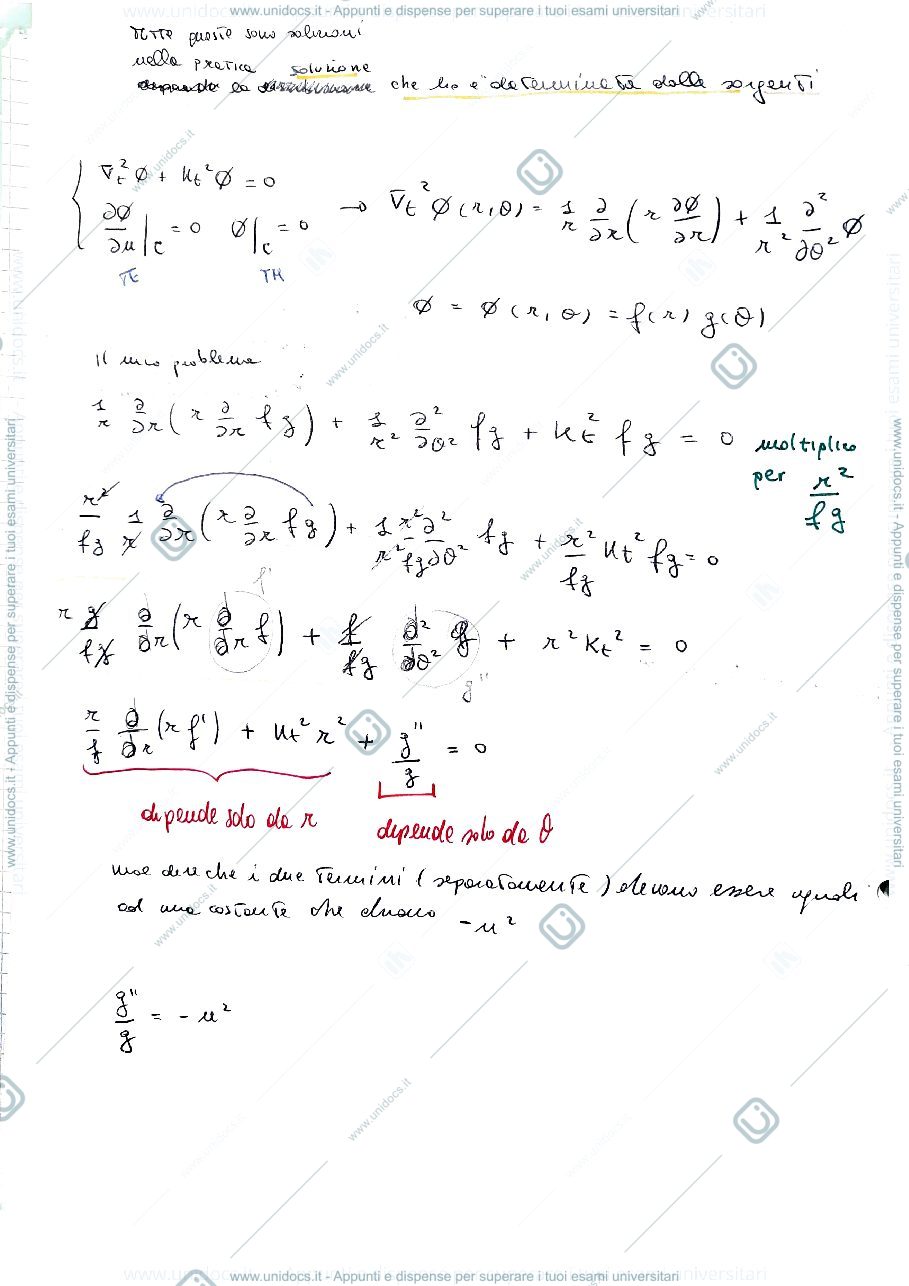 www.unidocs.it - Appunti e dispense per superare i tuoi esami universitari
Tutte queste sono soluzioni
nella pratica soluzione
la che ho è determinata dalle sorgenti
∇t² Ø + Kt² Ø = 0
∂Ø/∂n|c = 0 Ø|c = 0 → ∇t² Ø (r, θ) = 1/r ∂/∂r (r ∂Ø/∂r) + 1/r² ∂²/∂θ² Ø
TE TM
Ø = Ø (r, θ) = f(r) g(θ)
Il mio problema
1/r ∂/∂r (r ∂/∂r fg) + 1/r² ∂²/∂θ² fg + Kt² fg = 0 moltiplico
per r²/fg
r²/fg 1/r ∂/∂r (r ∂/∂r fg) + 1/r² r²/fg ∂²/∂θ² fg + r²/fg Kt² fg = 0
f'
r g/fg d/dr (r d/dr f) + f/fg d²/dθ² g + r² Kt² = 0
g''
r/f d/dr (r f') + Kt² r² + g''/g = 0
dipende solo da r dipende solo da θ
che i due termini (separatamente) devono essere uguali
ad una costante che chiamo -n²
g''/g = -n²
www.unidocs.it - Appunti e dispense per superare i tuoi esami universitari